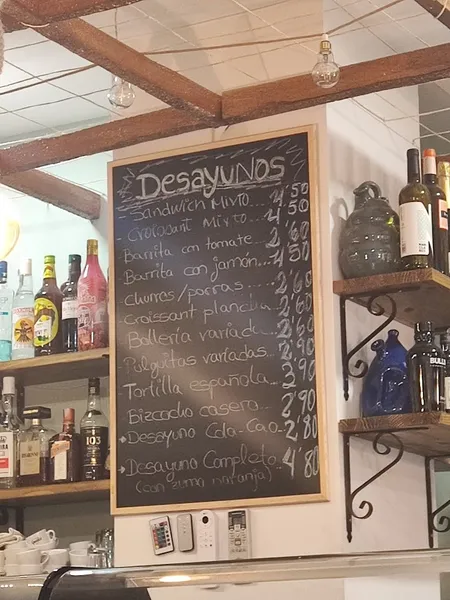 Desayunos
- Sandwich Mixto 4'50
- Croissant Mixto.. 4'50
- Barrita con tomate.. 2'60
- Barrita con jamón... 4'50
Churros/porras...
Croissant plancha 2'60
Bollería variada
- Pulguitas variadas...
- Tortilla española.. 2'90
Bizcocho casero... 2'90
Desayuno Cola-Cao.. 2'80
Desayuno Completo.. 4'80
(con zumo naranja)
103